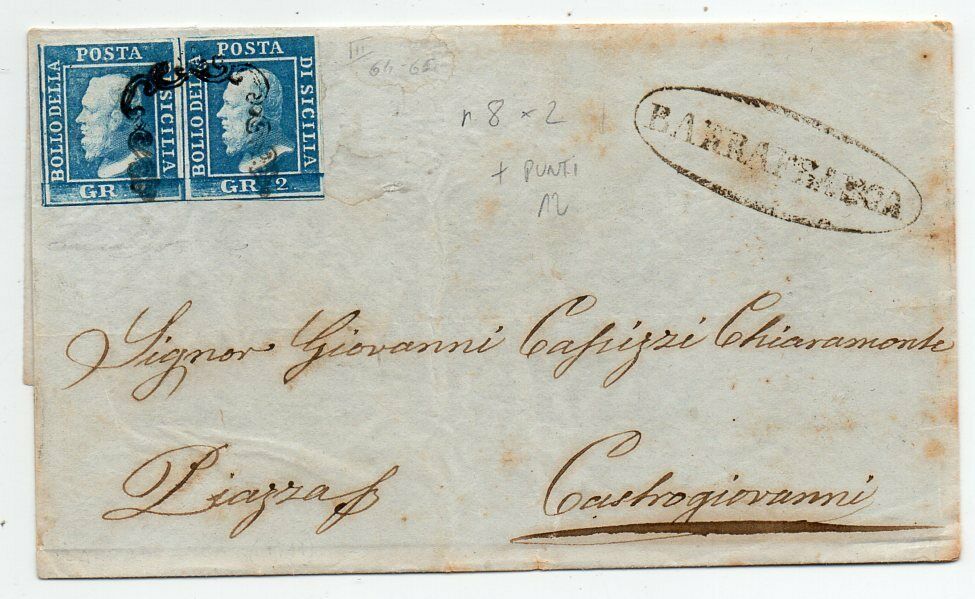 BOLLO DELLA POSTA SICILIA
GR
BOLLO DELLA POSTA DI SICILIA
GR 2
III
64-65
n 8 x 2
+ PUNTI
12
BARRAFRANCA
Signor Giovanni Cassizzi Chiaramonte
Piazza p
Castrogiovanni